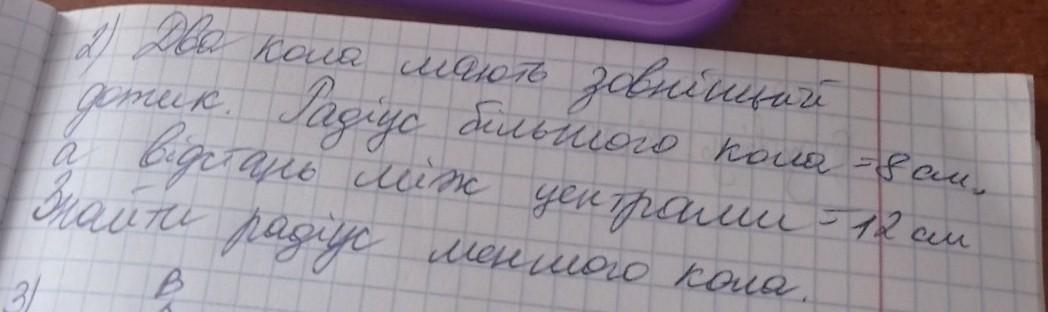 2) Два кола мають зовнішний
дотик. Радіус більшого кола = 8 см,
а відстань між центрами = 12 см
Знайти радіус меншого кола.
3) В